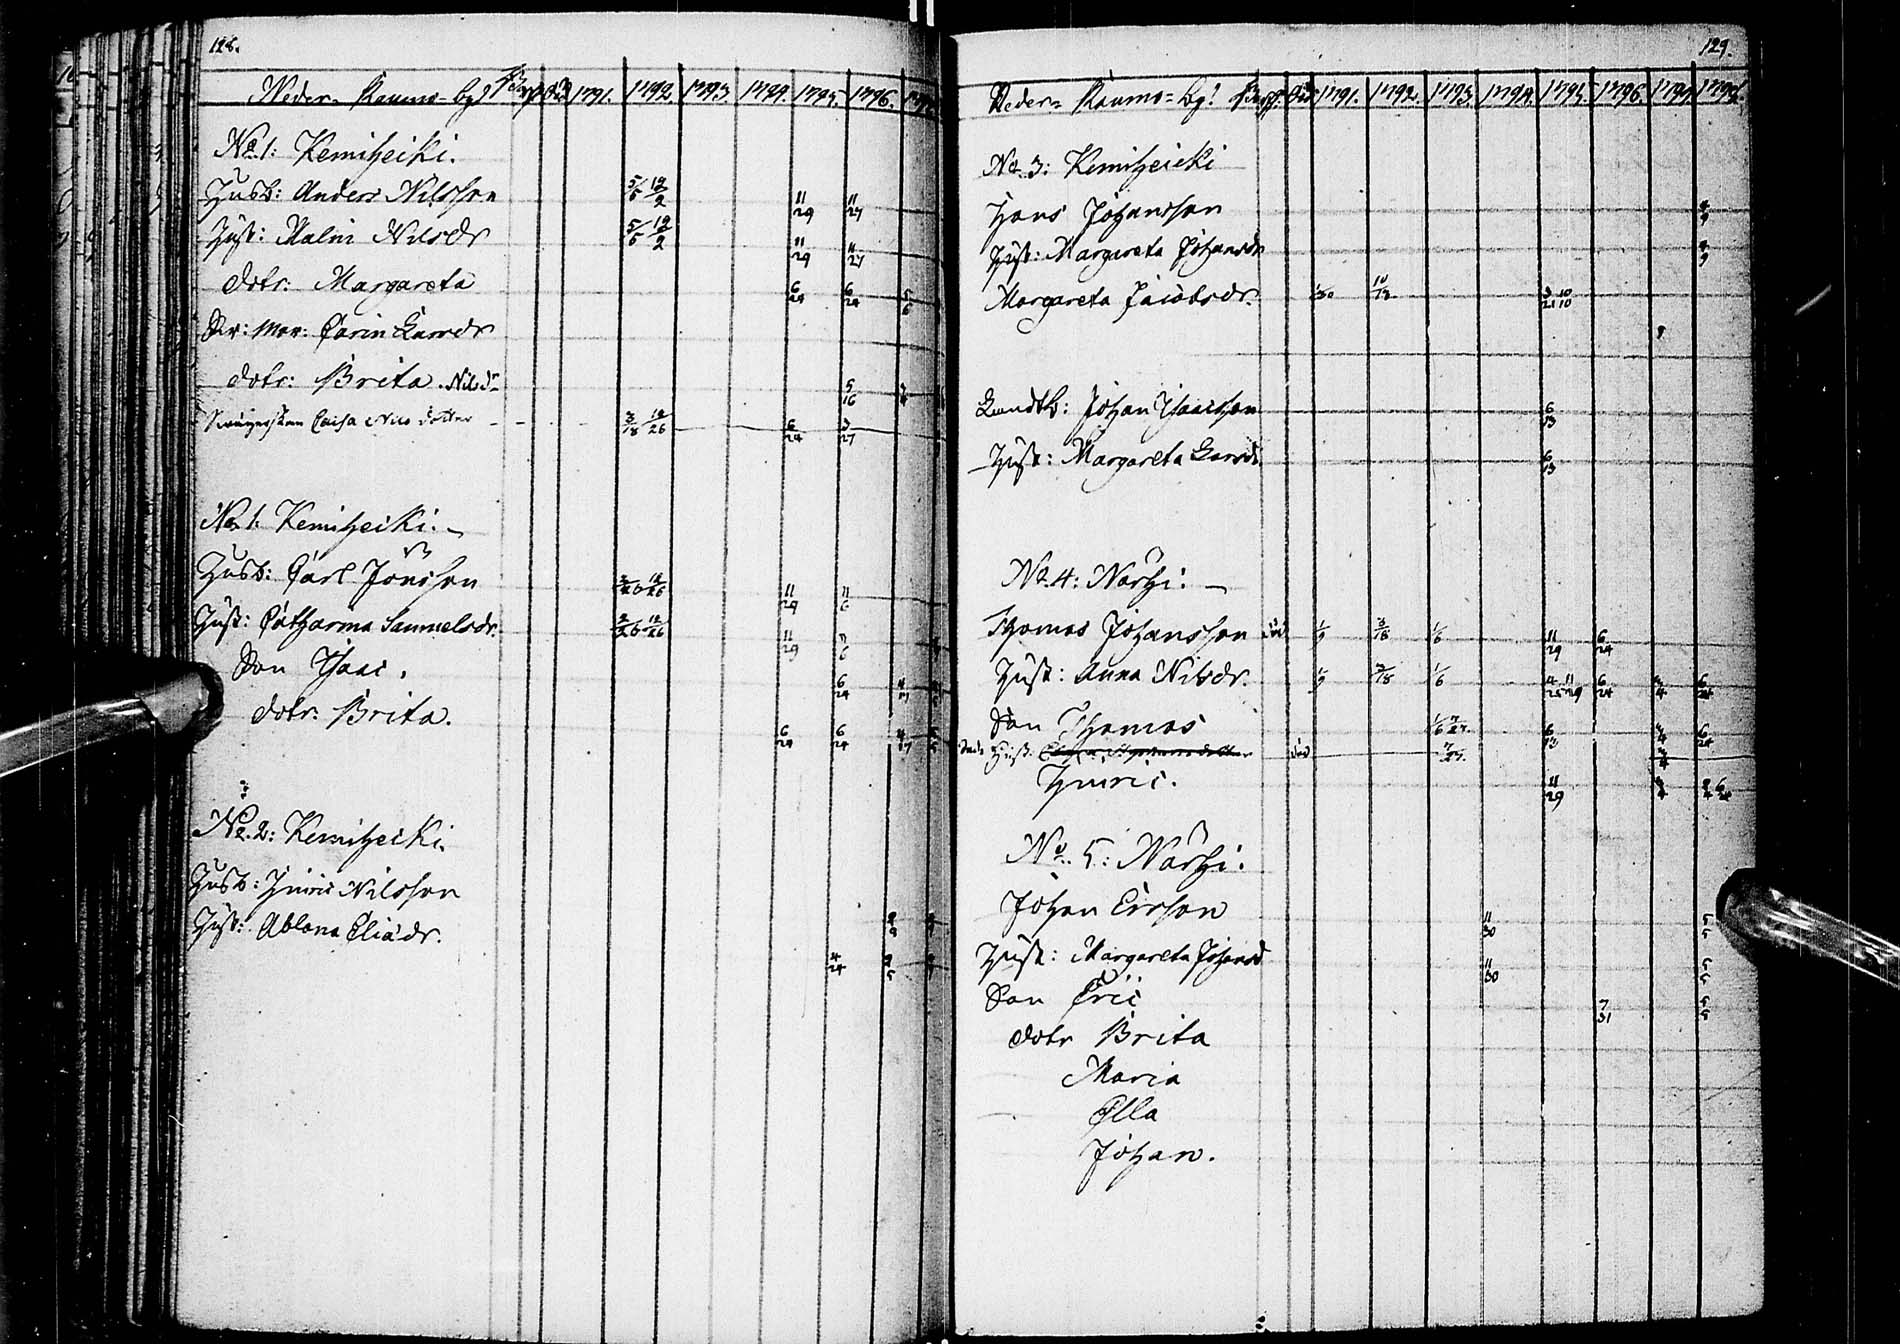 128.
Neder- Raumo-by! 1791. 1792 1793 1794. 1795. 1796.
No 1: Kemiheiki.
Husb: Anders Nilsson 5/6 12/2 11/29 11/27
Hust: Malin Nilsdr 5/6 12/2 11/29 11/27
dotr: Margareta 6/24 6/24 5/6
Sv: Mor: Carin Larsdr
dotr: Brita. Nilsdr 5/16
Swägerskan Caisa Nils dotter 3/18 12/26 6/24 3/27
No 1: Kemiheiki.
Husb: Carl Jönsson 2/26 12/26 11/29 11/6
Hust: Catharina Samuelsdr. 2/26 12/26 11/29 11/6
Son Isaac. 6/24 4/17
dotr: Brita. 6/24 6/24 4/17
No 2: Kemiheiki.
Husb: Hinric Nilsson
Hust: Ablona Eliædr. 4/24
129.
Neder- Raumo-by! 1791. 1792. 1793. 1794. 1795. 1796. 1797. 1798.
No 3: Kemiheicki
Hans Johansson
Hust: Margareta Johansdr
Margareta Jacobsdr. 1/30 10/13 3/21 10/10
Landtb: Johan Isacsson 6/13
Hust: Margareta Larsdr 6/13
No 4: Närhi.
Thomas Johansson död 1/9 3/18 1/6 11/29 6/24
Hust: Anna Nilsdr. 1/9 3/18 1/6 4/25 11/29 6/24 4/4 6/24
Son Thomas 1/6 7/27 6/13 4/4 6/24
Hust. död 7/27
Hinric. 11/29
No 5: Närhi.
Johan Ersson 11/30 5/5
Hust: Margareta Johansd 11/30 5/5
Son Eric 7/31 5/5
dotr Brita
Maria
Ella
Johan.